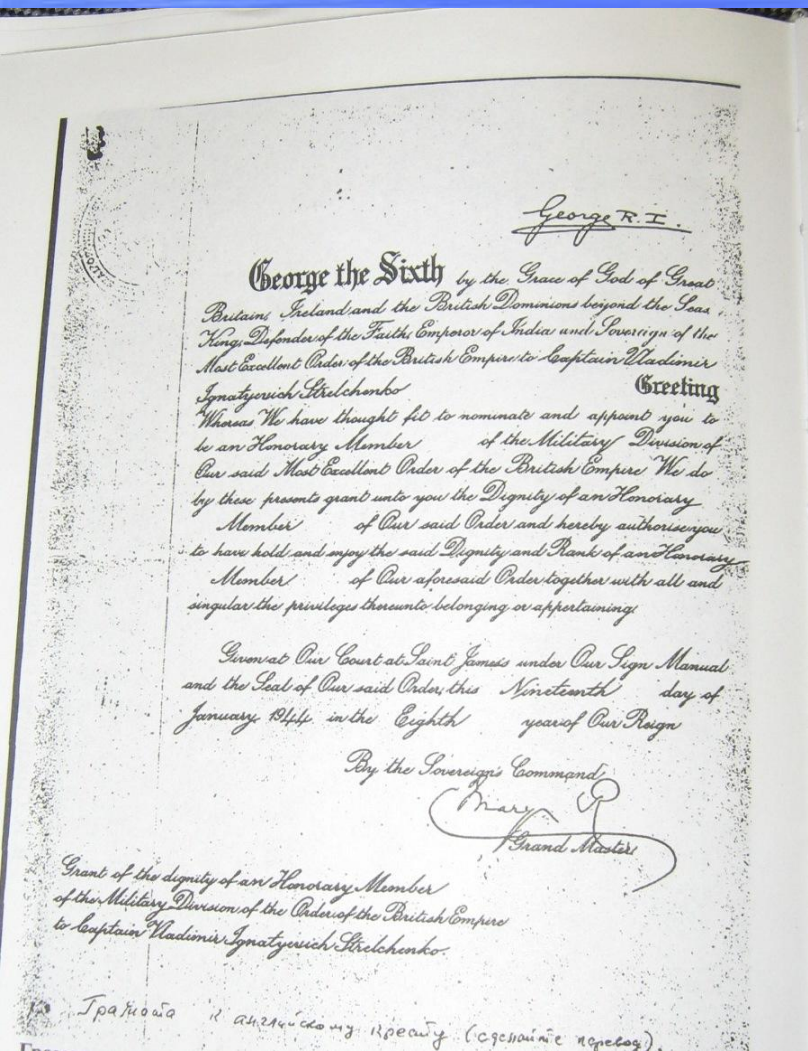 George R.I.
George the Sixth by the Grace of God of Great
Britain, Ireland and the British Dominions beyond the Seas
King, Defender of the Faith, Emperor of India and Sovereign of the
Most Excellent Order of the British Empire to Captain Vladimir
Ignatyevich Strelchenko Greeting
Whereas We have thought fit to nominate and appoint you to
be an Honorary Member of the Military Division of
Our said Most Excellent Order of the British Empire We do
by these presents grant unto you the Dignity of an Honorary
Member of Our said Order and hereby authorise you
to have hold and enjoy the said Dignity and Rank of an Honorary
Member of Our aforesaid Order together with all and
singular the privileges thereunto belonging or appertaining.
Given at Our Court at Saint James's under Our Sign Manual
and the Seal of Our said Order, this Nineteenth day of
January, 1944 in the Eighth year of Our Reign
By the Sovereign's Command,
Mary R
Grand Master
Grant of the dignity of an Honorary Member
of the Military Division of the Order of the British Empire
to Captain Vladimir Ignatyevich Strelchenko.
Грамота к английскому кресту (сделайте перевод).